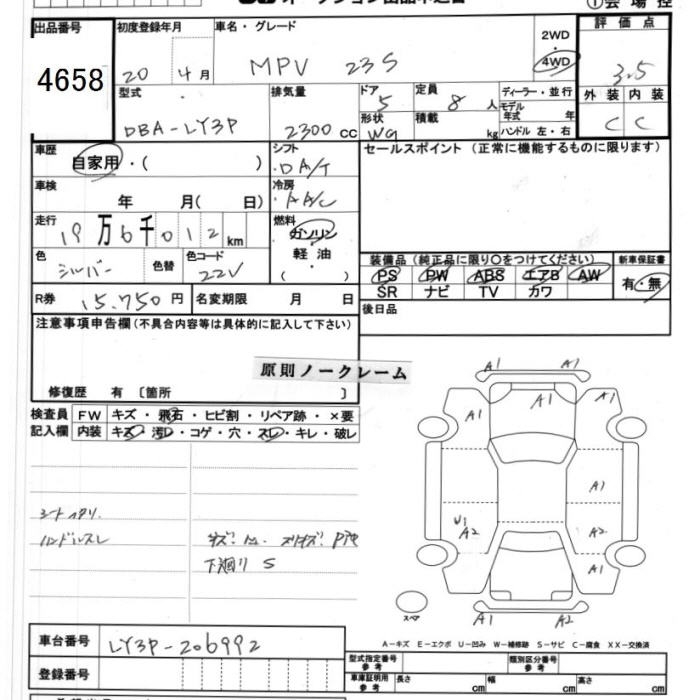 出品番号
4658
初度登録年月
20 4月
車名・グレード
MPV 23S
2WD
・
4WD
評価点
3.5
外装 内装
C C
型式
DBA-LY3P
排気量
2300cc
ドア
5
形状
WG
定員
8人
積載
kg
ディーラー・並行
モデル年式 年
ハンドル 左・右
車歴
自家用・( )
シフト
DA/T
セールスポイント(正常に機能するものに限ります)
車検
年 月( 日)
冷房
A/C
走行
19万6千012km
燃料
ガソリン
軽油
( )
色
シルバー
色替
色コード
22V
装備品(純正品に限り〇をつけてください)
PS PW ABS エアB AW
SR ナビ TV カワ
新車保証書
有・無
R券 15,750円
名変期限 月 日
後日品
注意事項申告欄(不具合内容等は具体的に記入して下さい)
原則ノークレーム
修復歴 有〔箇所 〕
検査員
記入欄
FW キズ・飛石・ヒビ割・リペア跡・×要
内装 キズ・汚レ・コゲ・穴・スレ・キレ・破レ
シートヘタリ
ハンドルスレ
下廻り S
A1 A1
A1 A1 A1
A1
U1 A2 A2
A1
A1 A2
スペア
A-キズ E-エクボ U-凹み W-補修跡 S-サビ C-腐食 XX-交換済
車台番号
LY3P-206992
登録番号
型式指定番号
参考
類別区分番号
参考
車庫証明用
参考
長さ cm 幅 cm 高さ cm